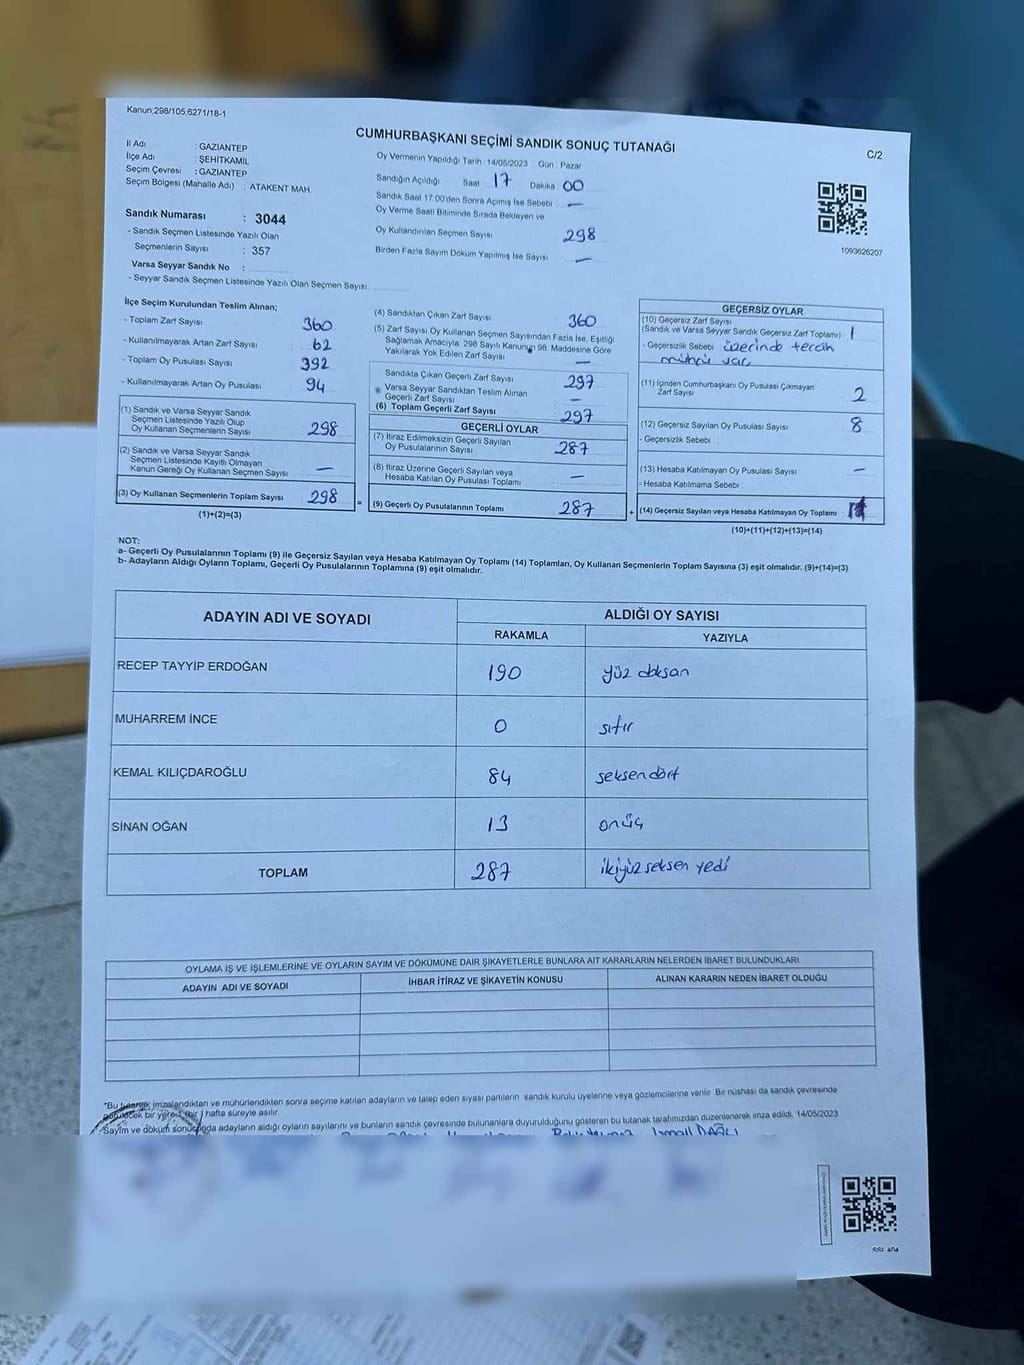 Kanun:298/105,6271/18-1
CUMHURBAŞKANI SEÇİMİ SANDIK SONUÇ TUTANAĞI
C/2
İl Adı : GAZİANTEP
İlçe Adı : ŞEHİTKAMİL
Seçim Çevresi : GAZİANTEP
Seçim Bölgesi (Mahalle Adı) : ATAKENT MAH
Sandık Numarası : 3044
- Sandık Seçmen Listesinde Yazılı Olan
Seçmenlerin Sayısı : 357
Varsa Seyyar Sandık No :
- Seyyar Sandık Seçmen Listesinde Yazılı Olan Seçmen Sayısı:
Oy Vermenin Yapıldığı Tarih :14/05/2023 Gün : Pazar
Sandığın Açıldığı Saat 17 Dakika : 00
Sandık Saat 17:00'den Sonra Açımış İse Sebebi : —
Oy Verme Saati Bitiminde Sırada Bekleyen ve
Oy Kullandırılan Seçmen Sayısı 298
Birden Fazla Sayım Döküm Yapılmış İse Sayısı : —
1093626207
İlçe Seçim Kurulundan Teslim Alınan;
- Toplam Zarf Sayısı : 360
- Kullanılmayarak Artan Zarf Sayısı : 62
- Toplam Oy Pusulası Sayısı : 392
- Kullanılmayarak Artan Oy Pusulası : 94
(1) Sandık ve Varsa Seyyar Sandık
Seçmen Listesinde Yazılı Olup
Oy Kullanan Seçmenlerin Sayısı : 298
(2) Sandık ve Varsa Seyyar Sandık
Seçmen Listesinde Kayıtlı Olmayan
Kanun Gereği Oy Kullanan Seçmen Sayısı : —
(3) Oy Kullanan Seçmenlerin Toplam Sayısı : 298
(1)+(2)=(3)
(4) Sandıktan Çıkan Zarf Sayısı : 360
(5) Zarf Sayısı Oy Kullanan Seçmen Sayısından Fazla İse, Eşitliği
Sağlamak Amacıyla, 298 Sayılı Kanunun 98. Maddesine Göre
Yakılarak Yok Edilen Zarf Sayısı : —
Sandıkta Çıkan Geçerli Zarf Sayısı : 297
Varsa Seyyar Sandıktan Teslim Alınan
Geçerli Zarf Sayısı : —
(6) Toplam Geçerli Zarf Sayısı : 297
GEÇERLİ OYLAR
(7) İtiraz Edilmeksizin Geçerli Sayılan
Oy Pusulalarının Sayısı : 287
(8) İtiraz Üzerine Geçerli Sayılan veya
Hesaba Katılan Oy Pusulası Toplamı : —
= (9) Geçerli Oy Pusulalarının Toplamı : 287
GEÇERSİZ OYLAR
(10) Geçersiz Zarf Sayısı
(Sandık ve Varsa Seyyar Sandık Geçersiz Zarf Toplamı) : 1
- Geçersizlik Sebebi : üzerinde tercih
mührü var.
(11) İçinden Cumhurbaşkanı Oy Pusulası Çıkmayan
Zarf Sayısı : 2
(12) Geçersiz Sayılan Oy Pusulası Sayısı : 8
- Geçersizlik Sebebi :
(13) Hesaba Katılmayan Oy Pusulası Sayısı : —
- Hesaba Katılmama Sebebi :
+ (14) Geçersiz Sayılan veya Hesaba Katılmayan Oy Toplamı : 11
(10)+(11)+(12)+(13)=(14)
NOT:
a- Geçerli Oy Pusulalarının Toplamı (9) ile Geçersiz Sayılan veya Hesaba Katılmayan Oy Toplamı (14) Toplamları, Oy Kullanan Seçmenlerin Toplam Sayısına (3) eşit olmalıdır. (9)+(14)=(3)
b- Adayların Aldığı Oyların Toplamı, Geçerli Oy Pusulalarının Toplamına (9) eşit olmalıdır.
ADAYIN ADI VE SOYADI ALDIĞI OY SAYISI
RAKAMLA YAZIYLA
RECEP TAYYİP ERDOĞAN 190 yüz doksan
MUHARREM İNCE 0 sıfır
KEMAL KILIÇDAROĞLU 84 seksendört
SİNAN OĞAN 13 onüç
TOPLAM 287 ikiyüzseksen yedi
OYLAMA İŞ VE İŞLEMLERİNE VE OYLARIN SAYIM VE DÖKÜMÜNE DAİR ŞİKAYETLERLE BUNLARA AİT KARARLARIN NELERDEN İBARET BULUNDUKLARI
ADAYIN ADI VE SOYADI İHBAR İTİRAZ VE ŞİKAYETİN KONUSU ALINAN KARARIN NEDEN İBARET OLDUĞU
*Bu tutanak imzalandıktan ve mühürlendikten sonra seçime katılan adayların ve talep eden siyasi partilerin sandık kurulu üyelerine veya gözlemcilerine verilir. Bir nüshası da sandık çevresinde
görülecek bir yere 1 (bir) hafta süreyle asılır.
Sayım ve döküm sonucunda adayların aldığı oyların sayılarını ve bunların sandık çevresinde bulunanlara duyurulduğunu gösteren bu tutanak tarafımızdan düzenlenerek imza edildi. 14/05/2023
İsmail DAĞLI